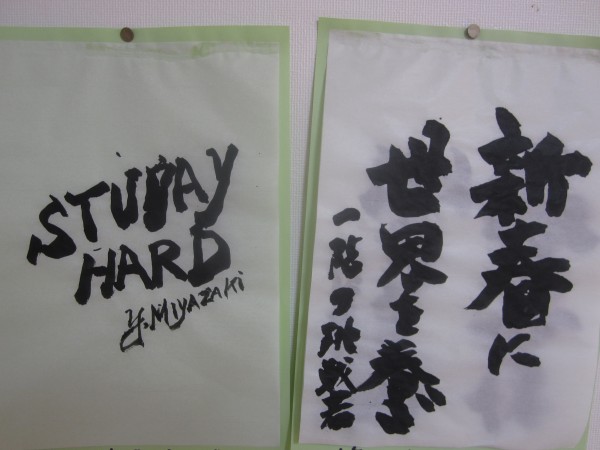 STUDAY
HARD
Y.MIYAZAKI
新春に
世界を養
一階の挑戦者